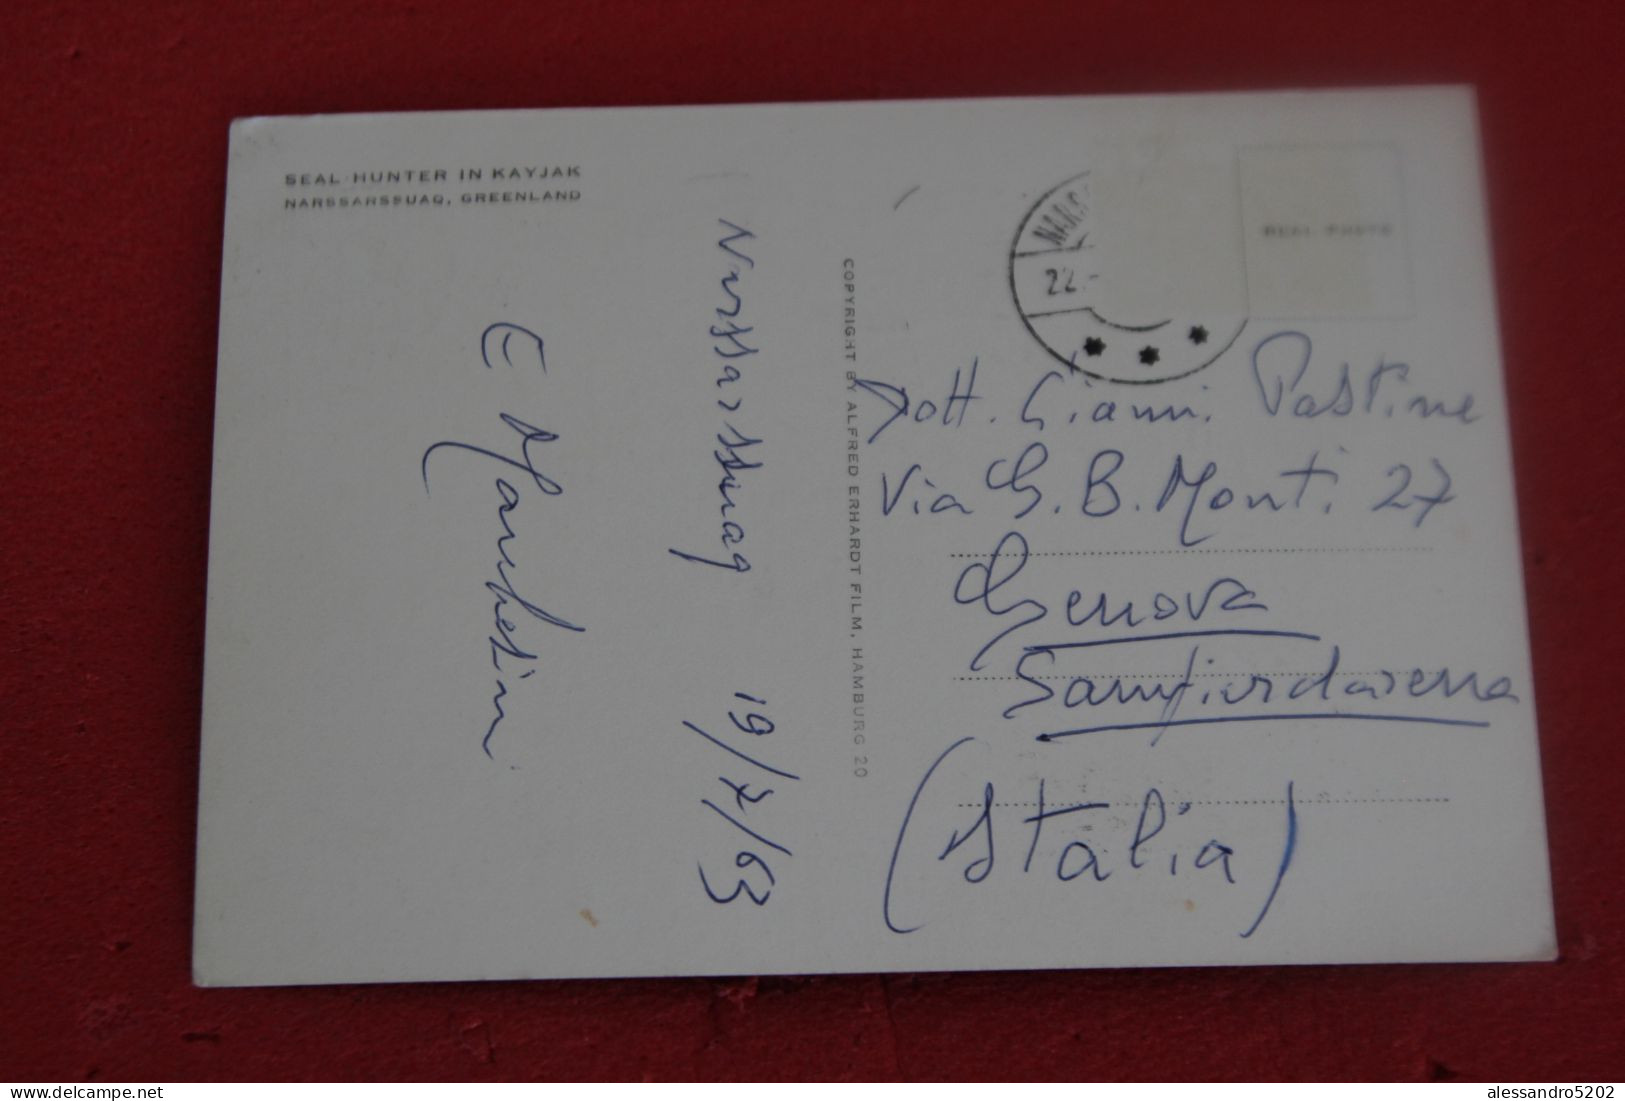 SEAL-HUNTER IN KAYJAK
NARSSARSSUAQ, GREENLAND
Narssarssuaq 19/7/63
E Marchesini
COPYRIGHT BY ALFRED ERHARDT FILM, HAMBURG 20
NARS
22.-
REAL PHOTO
Dott. Gianni Pastine
Via G. B. Monti 27
Genova
Sampierdarena
(Italia)
delcampe.net
alessandro5202